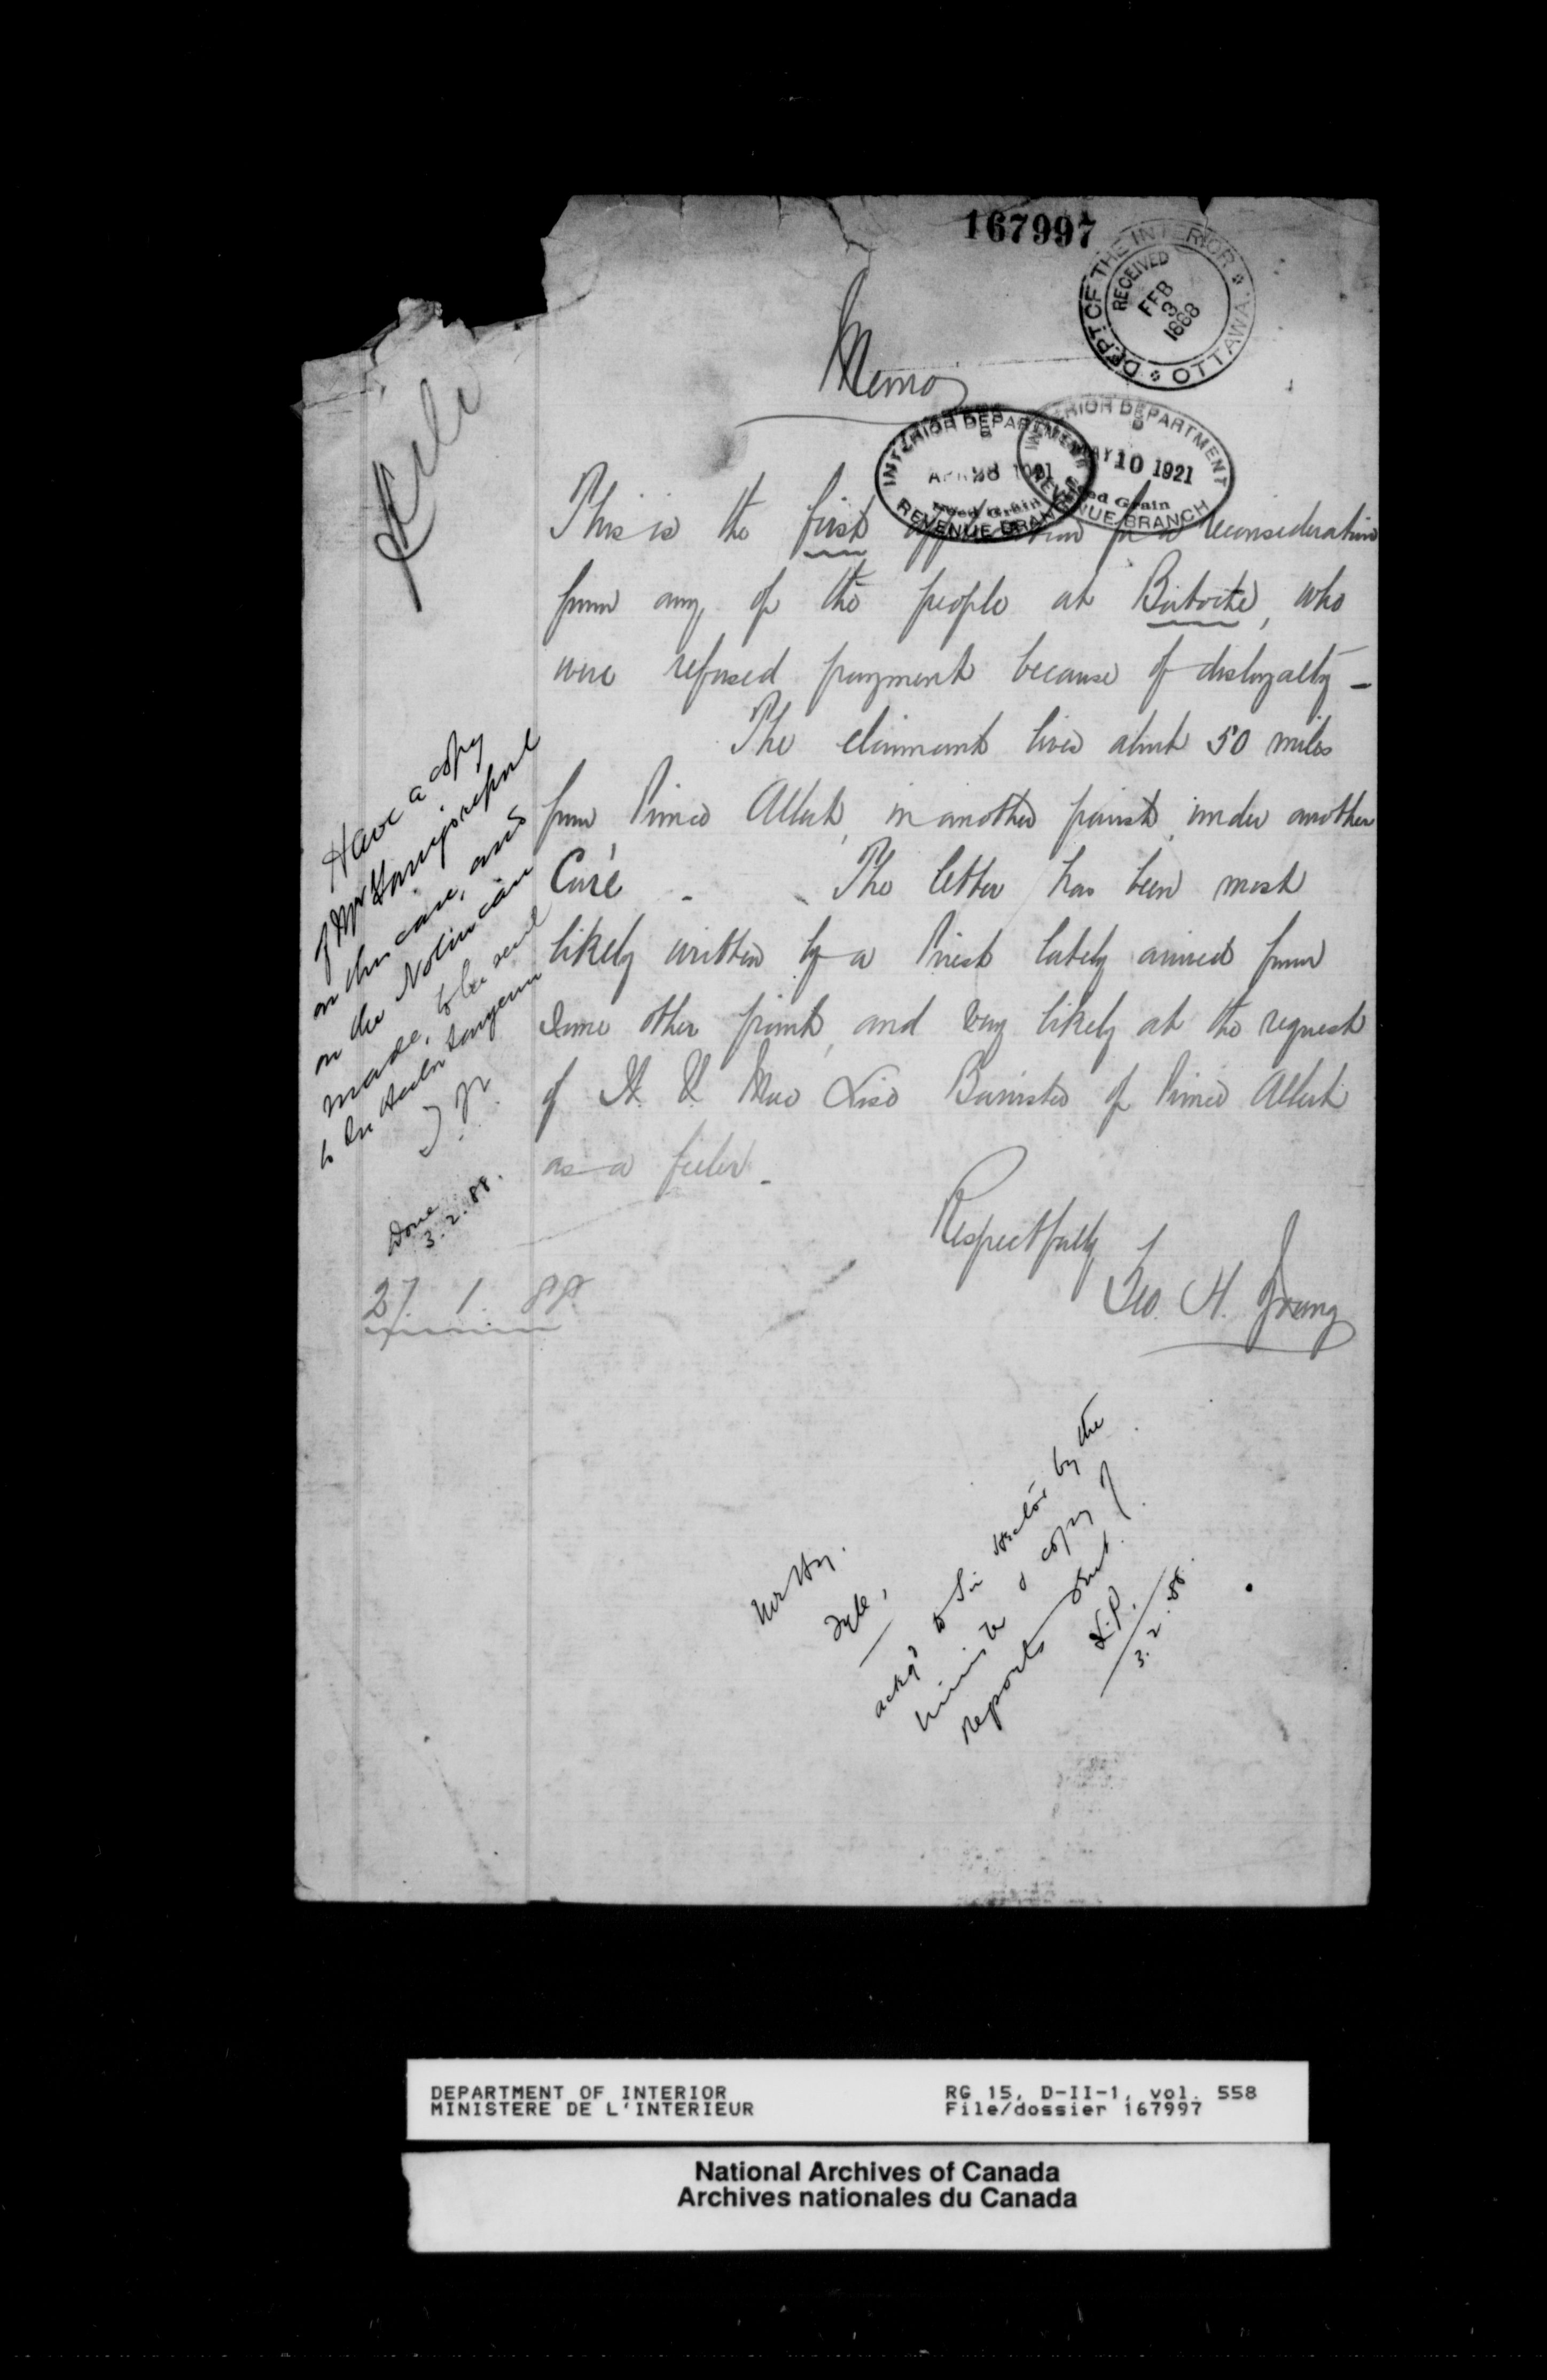 167997
DEPT OF THE INTERIOR
OTTAWA
RECEIVED
FEB
3
1888
Memo
INTERIOR DEPARTMENT
APR 28 1921
Seed Grain
REVENUE BRANCH
INTERIOR DEPARTMENT
MAY 10 1921
Seed Grain
REVENUE BRANCH
File
This is the first application for a reconsideration
from any of the people at Batoche, who
were refused payment because of disloyalty –
The claimant lives about 50 miles
from Prince Albert, in another parish, under another
Curé – The letter has been most
likely written by a Priest lately arrived from
some other point, and very likely at the request
of Mac Lise Barrister of Prince Albert
as a feeler –
Respectfully
Geo. H. Young
27. 1. 88
Have a copy
of Mr Young's report
on this case, and
on the Nolin case
made, to be sent
to Sir Hector Langevin
Done
3.2.88.
File,
ackd to Sir Hector by the
Minister & copy of
reports sent.
3.2.88.
DEPARTMENT OF INTERIOR
MINISTERE DE L'INTERIEUR
RG 15, D-II-1, vol. 558
File/dossier 167997
National Archives of Canada
Archives nationales du Canada